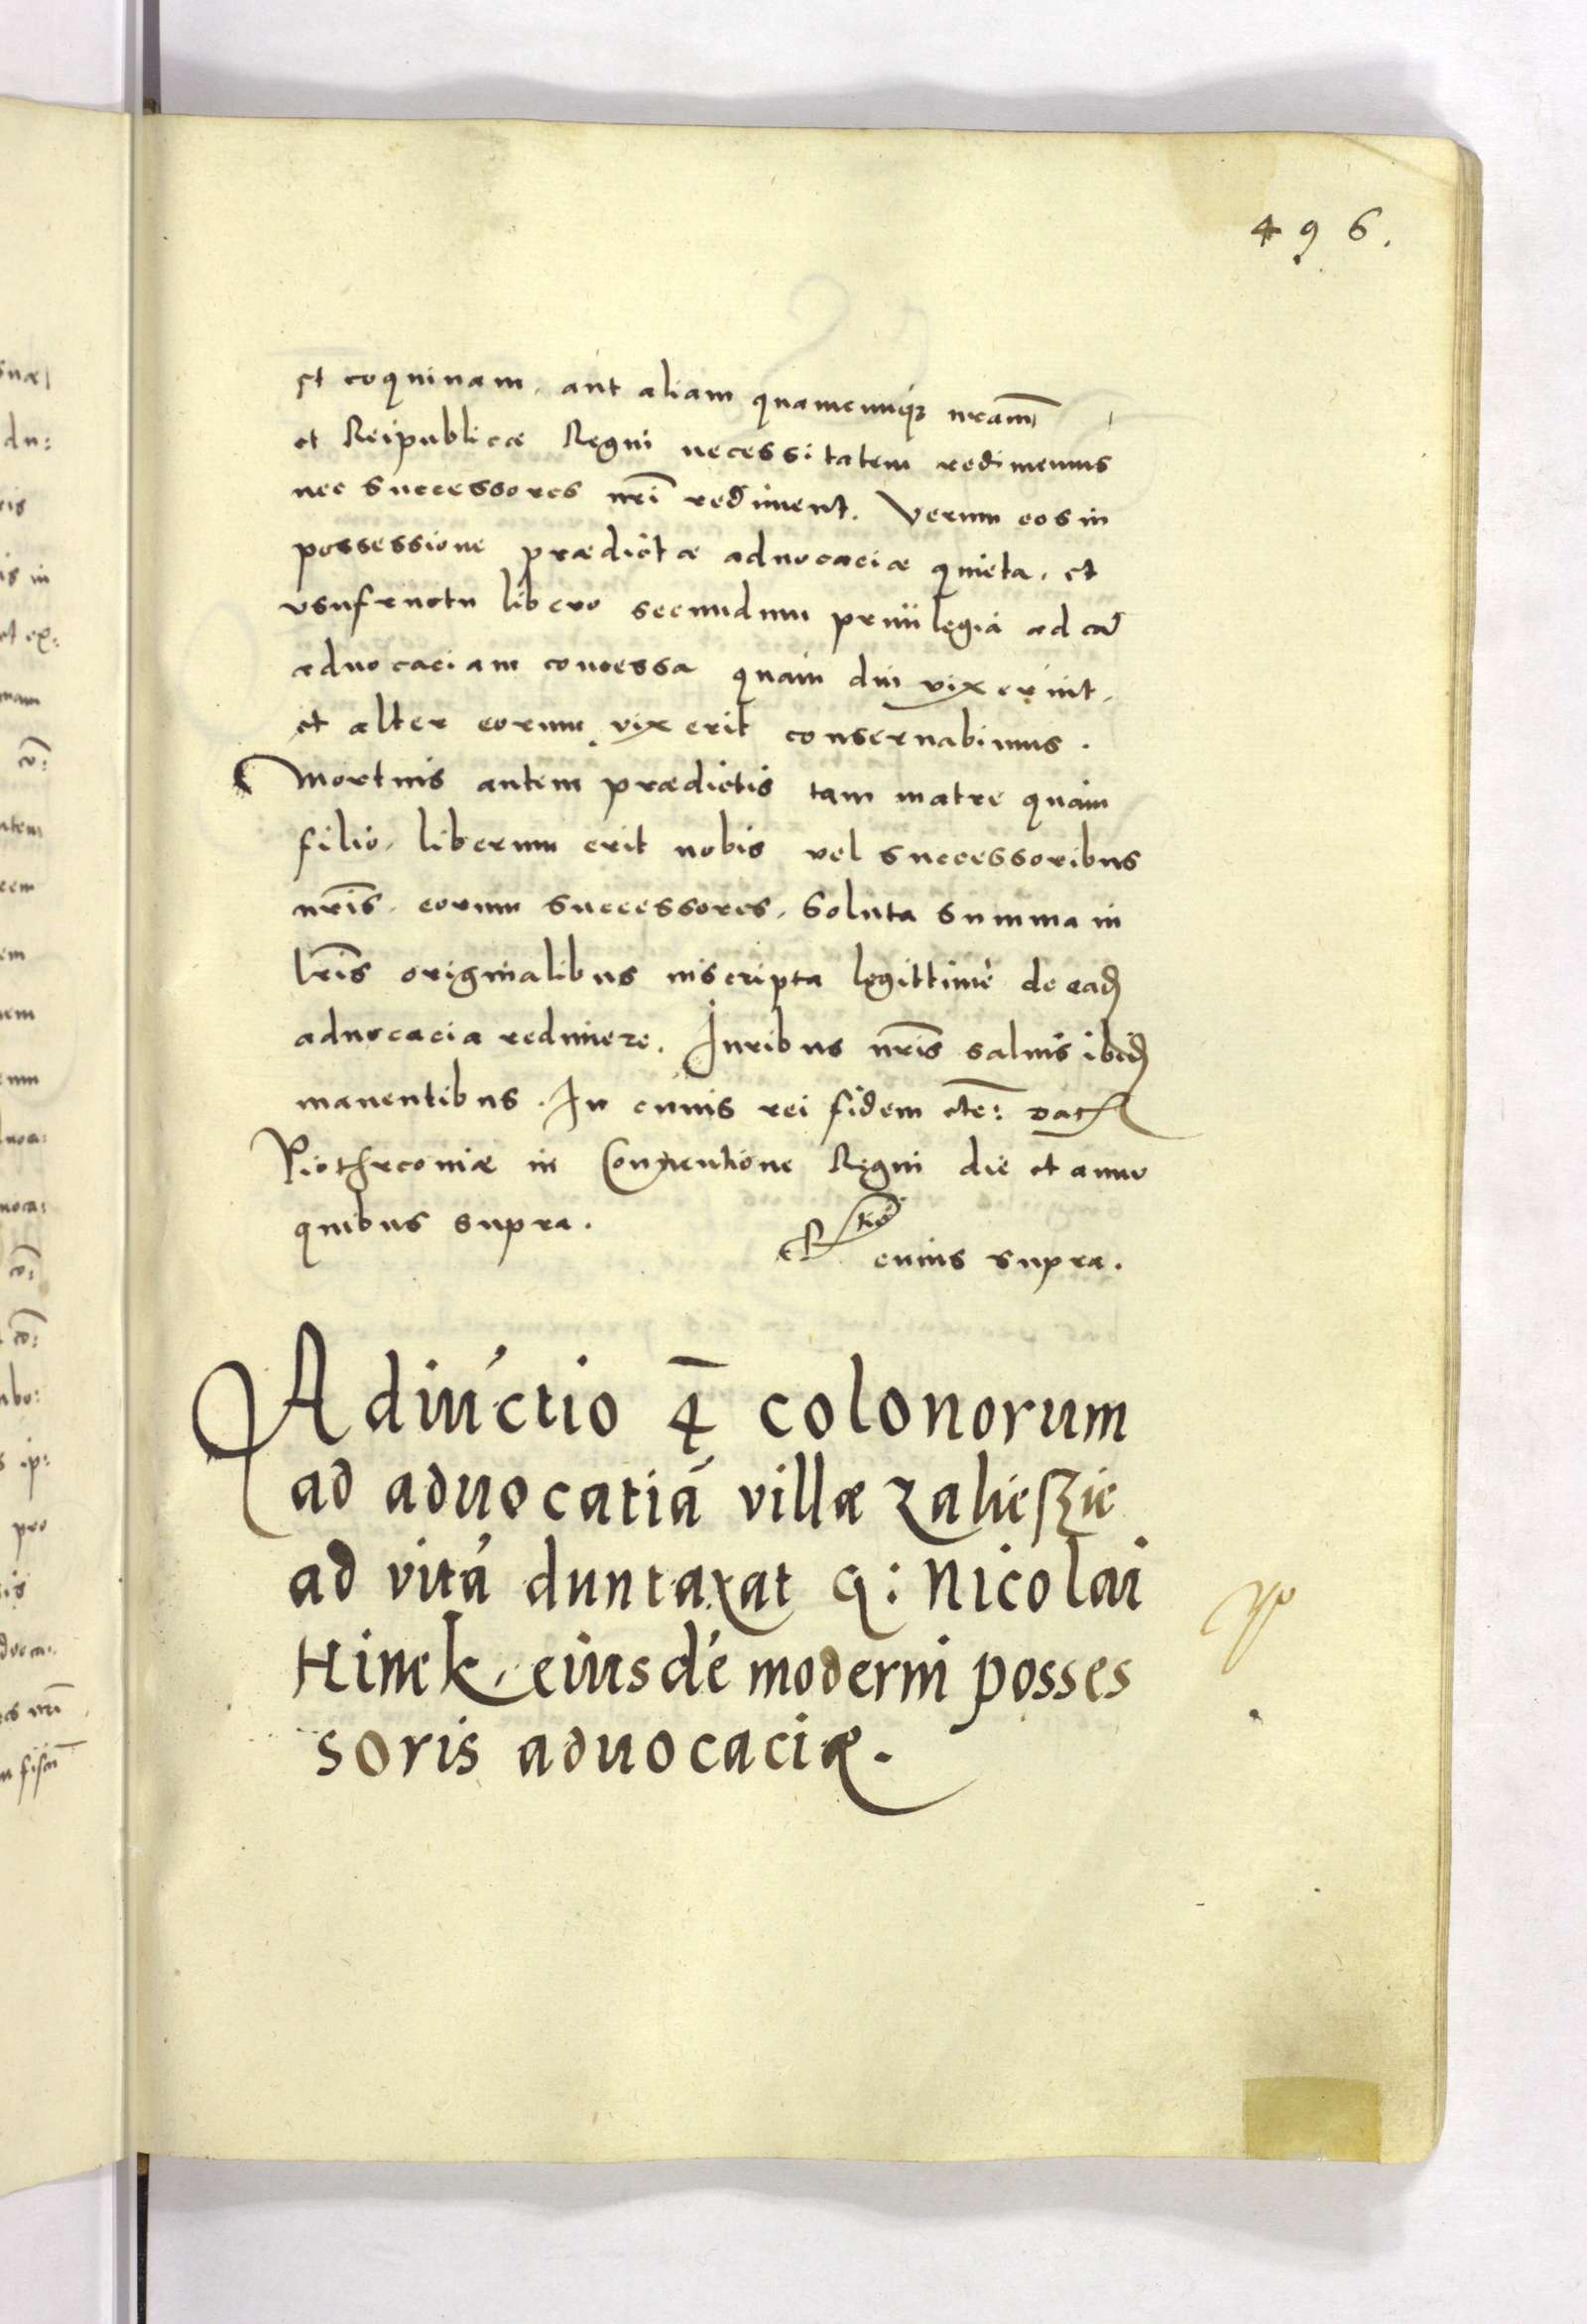 496.
et coquinam, aut aliam quamcunqꝫ nr̃am
et Reipublicæ Regni necessitatem redimemus
nec successores nr̃i rediment. Verum eos in
possessione prædictæ aduocaciæ quieta, et
vsufructu libero secundum priuilegia ad eā
aduocaciam concessa quam diu vixerint,
et alter eorum vixerit conseruabimus.
Mortuis autem prædictis tam matre quàm
filio, liberum erit nobis vel successoribus
nr̃is, eorum successores, soluta summa in
lr̃is originalibus inscripta legittimè de eadꝫ
aduocacia redimere. Iuribus nr̃is saluis ibidꝫ
manentibus. In cuius rei fidem etc: Dat
Piothrcouiæ in Conuentione Regni die et anno
quibus supra.
Rtio
cuius supra.
Adiūctio 4 colonorum
ad aduocatiā villæ Zalieszie
ad vitā duntaxat G: Nicolai
Hinek, eiusdē moderni posses
soris aduocaciæ.